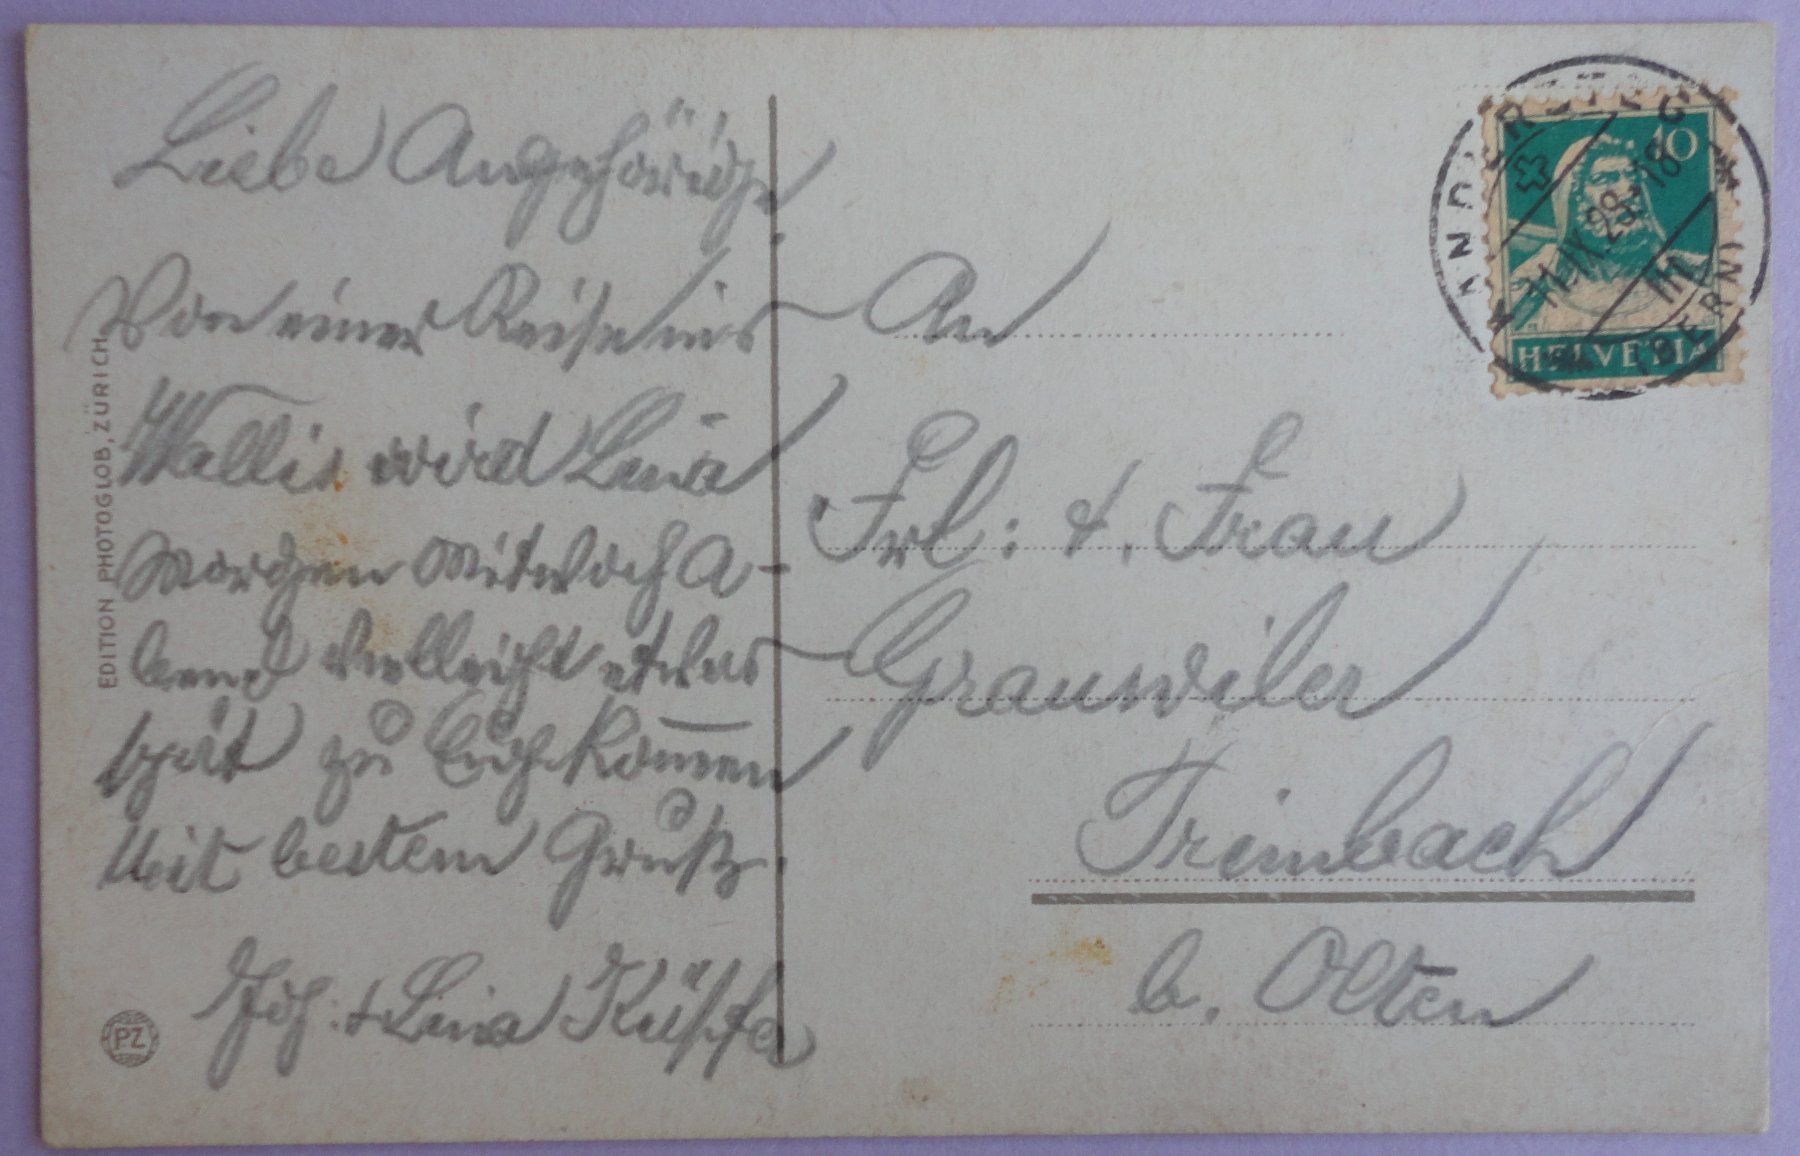 Liebe Angehörige
Von einer Reise ins
Wallis wird Lina
Morgen Mitwoch A-
bend vielleicht etwas
spät zu Euch kom̅en
Mit bestem Gruß.
Joh: + Lina
An
Frl: & Frau
Grauwiler
Trimbach
b. Olten
EDITION PHOTOGLOB, ZÜRICH
PZ
KANDERSTEG
(BERN)
11.IX.28.-18
10
HELVETIA